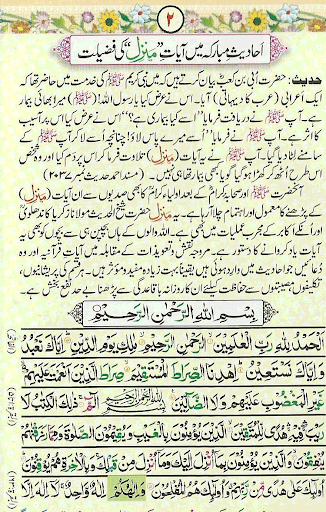 ۲
احادیثِ مبارکہ میں آیاتِ "منزل" کی فضیلت
حدیث: حضرت اُبی بن کعبؓ بیان کرتے ہیں کہ میں نبی کریم ﷺ کی خدمت میں حاضر تھا کہ
ایک اعرابی (عرب کا دیہاتی) آیا۔ اس نے عرض کیا یا رسول اللہ! (ﷺ) میرا بھائی بیمار
ہے۔ آپ ﷺ نے دریافت فرمایا "اُسے کیا بیماری ہے؟" اس نے عرض کیا اس پر آسیب
کا اثر ہے۔ آپ ﷺ نے فرمایا "اُسے میرے پاس لاؤ!" چنانچہ اُسے لا کر آپ ﷺ کے
سامنے لٹا دیا گیا۔ آپ ﷺ نے یہ آیات (منزل) تلاوت فرما کر اس پر دَم کیا اور وہ شخص
اس طرح اُٹھ کر کھڑا ہو گیا گویا کبھی بیمار تھا ہی نہیں۔ (مسند احمد حدیث نمبر ۲۰۳۷)
آنحضرت ﷺ اور صحابہ کرامؓ کے بعد اولیاء کرامؒ کا بھی صدیوں سے ان آیات (منزل)
کے پڑھنے کا معمول اور اہتمام چلا آ رہا ہے۔ یہ منزل حضرت شیخ الحدیث مولانا زکریا کاندھلویؒ
اور انکے اکابر کے مجرب عملیات میں بھی ہے۔ اللہ والوں کے ہاں بچپن ہی سے بچوں کو بھی یہ
آیات یاد کروانے کا دستور ہے۔ مروجہ نقش و تعویذات کے مقابلہ میں آیاتِ قرآنیہ اور وہ
دعائیں جو احادیث میں وارد ہوئی ہیں یقیناً بہت زیادہ مفید و مؤثر ہیں۔ ہر قسم کی پریشانیوں،
تکلیفوں مصیبتوں سے حفاظت کیلئے ان کا روزانہ باقاعدگی سے پڑھنا بے حد نفع بخش ہے۔
بِسْمِ اللهِ الرَّحْمٰنِ الرَّحِيْمِ
اَلْحَمْدُ لِلّٰهِ رَبِّ الْعٰلَمِيْنَ الرَّحْمٰنِ الرَّحِيْمِ مٰلِكِ يَوْمِ الدِّيْنِ اِيَّاكَ نَعْبُدُ
وَاِيَّاكَ نَسْتَعِيْنُ اِهْدِنَا الصِّرَاطَ الْمُسْتَقِيْمَ صِرَاطَ الَّذِيْنَ اَنْعَمْتَ عَلَيْهِمْ
غَيْرِ الْمَغْضُوْبِ عَلَيْهِمْ وَلَا الضَّآلِّيْنَ بِسْمِ اللهِ الرَّحْمٰنِ الرَّحِيْمِ الٓمّٓ ذٰلِكَ الْكِتٰبُ لَا
رَيْبَ فِيْهِ هُدًى لِّلْمُتَّقِيْنَ الَّذِيْنَ يُؤْمِنُوْنَ بِالْغَيْبِ وَيُقِيْمُوْنَ الصَّلٰوةَ وَمِمَّا رَزَقْنٰهُمْ
يُنْفِقُوْنَ وَالَّذِيْنَ يُؤْمِنُوْنَ بِمَآ اُنْزِلَ اِلَيْكَ وَمَآ اُنْزِلَ مِنْ قَبْلِكَ وَبِالْاٰخِرَةِ هُمْ يُوْقِنُوْنَ
اُولٰٓئِكَ عَلٰى هُدًى مِّنْ رَّبِّهِمْ وَاُولٰٓئِكَ هُمُ الْمُفْلِحُوْنَ وَاِلٰهُكُمْ اِلٰهٌ وَّاحِدٌ لَآ اِلٰهَ اِلَّا